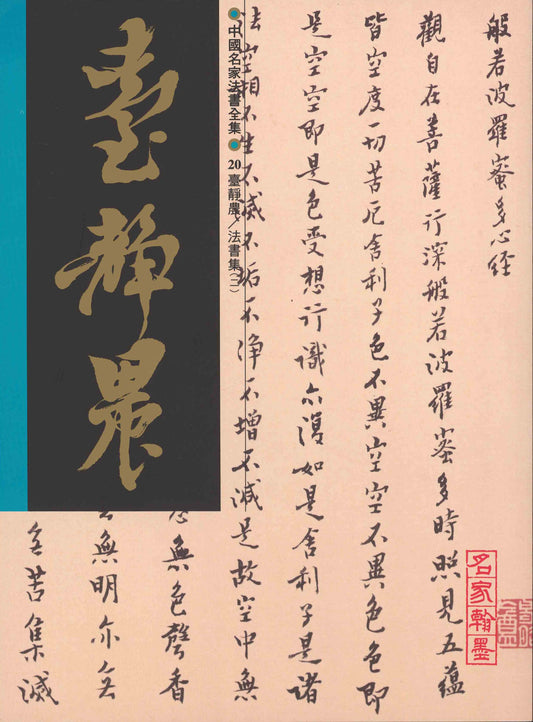 臺靜農
中國名家法書全集
20 臺靜農／法書集(二)
般若波羅蜜多心経
觀自在菩薩行深般若波羅蜜多時照見五蘊
皆空度一切苦厄舍利子色不異空空不異色色即
是空空即是色受想行識亦復如是舍利子是諸
法空相不生不滅不垢不淨不增不減是故空中無
無色聲香
無明亦无
无苦集滅
名家翰墨